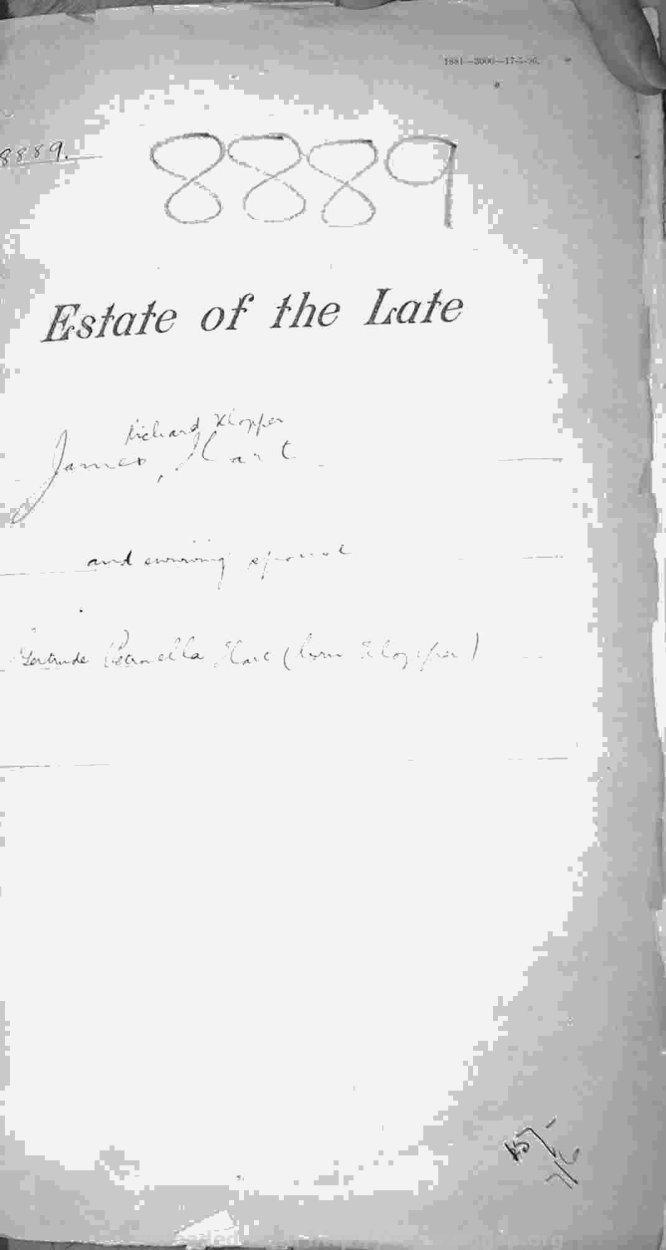 1881—3000—17-5-26.
8889.
8889
Estate of the Late
Richard Klopper
James, Hart
and surviving spouse
Gertrude Petronella Hart (born Klopper)